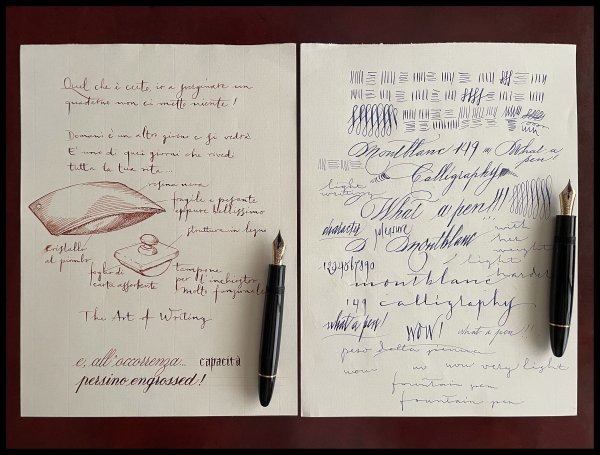 Quel che è certo, io a pasginare un
quaderno non ci metto niente!
Domani è un altro giorno e si vedrà
E' uno di quei giorni che rivedi
tutta la tua vita...
resina nera
fragile e pesante
eppure bellissimo
struttura in legno
cristallo
al piombo
foglio di
carta assorbente
tampone
per l'inchiostro
molto funzionale
The Art of Writing
e, all'occorrenza... capacità
persino engrossed!
Montblanc 149 What a
pen!
Calligraphy
light
writing
What a pen!!!
character pleasure with
Montblanc her
weight
1234567890 light
montblanc harder
149 calligraphy
what a pen! WOW! what a pen!!!
peso della penna
wow very light
fountain pen
fountain pen